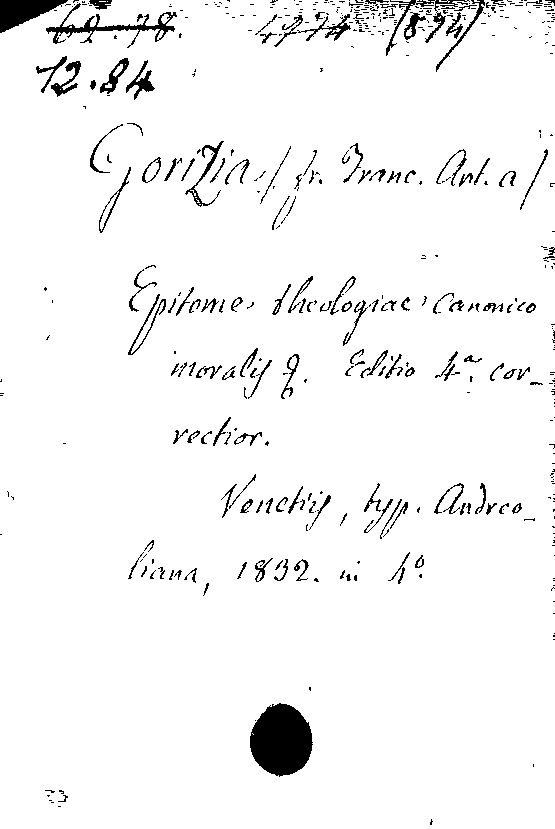 69.78. 4974 (894)
12.84
Gorizia (fr. Franc. Ant. a)
Epitome theologiae canonico
moralis &. Editio 4ª. cor-
rectior.
Venetiis, typ. Andreo-
liana, 1832. in 4º.